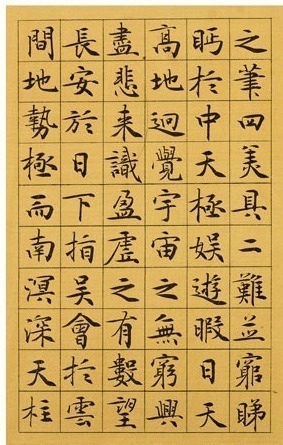 之筆四美具二難並窮睇
眄於中天極娛遊暇日天
高地迥覺宇宙之無窮興
盡悲来識盈虛之有數望
長安於日下指吳會於雲
間地勢極而南溟深天柱